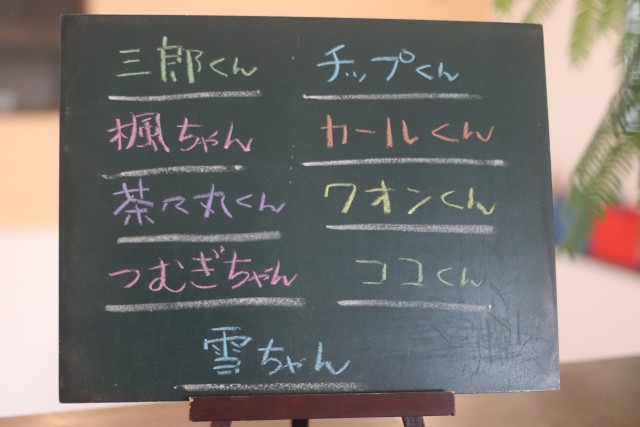 三郎くん
チップくん
楓ちゃん
カールくん
茶々丸くん
クオンくん
つむぎちゃん
ココくん
雪ちゃん